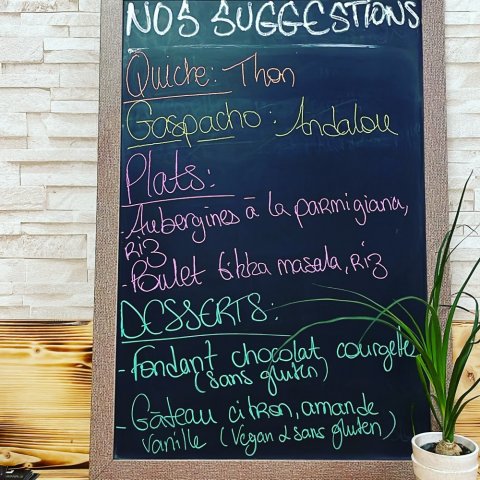 NOS SUGGESTIONS
Quiche: Thon
Gaspacho: Andalou
Plats:
- Aubergines à la parmigiana,
Riz
- Poulet tikka masala, Riz
DESSERTS:
- Fondant chocolat courgette
(sans gluten)
- Gâteau citron, amande
vanille (Vegan & sans gluten)